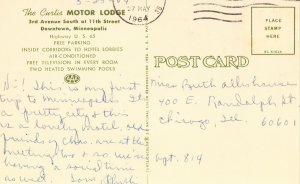 The Curtis MOTOR LODGE
3rd Avenue South at 11th Street
Downtown, Minneapolis
Highway U.S. 65
FREE PARKING
INSIDE CORRIDORS TO HOTEL LOBBIES
AIR-CONDITIONED
FREE TELEVISION IN EVERY ROOM
TWO HEATED SWIMMING POOLS
27 MAY
1964
PLACE
STAMP
HERE
POST CARD
Hi! This is my first
trip to Minneapolis. It's
a pretty city & this
is a lovely motel, old
friends of Chas. are at the
meeting too & so we're
having a social time
as well. Love, Ruth
Miss Ruth
400 E. Randolph St
Chicago, Ill.
60601
Apt. 814